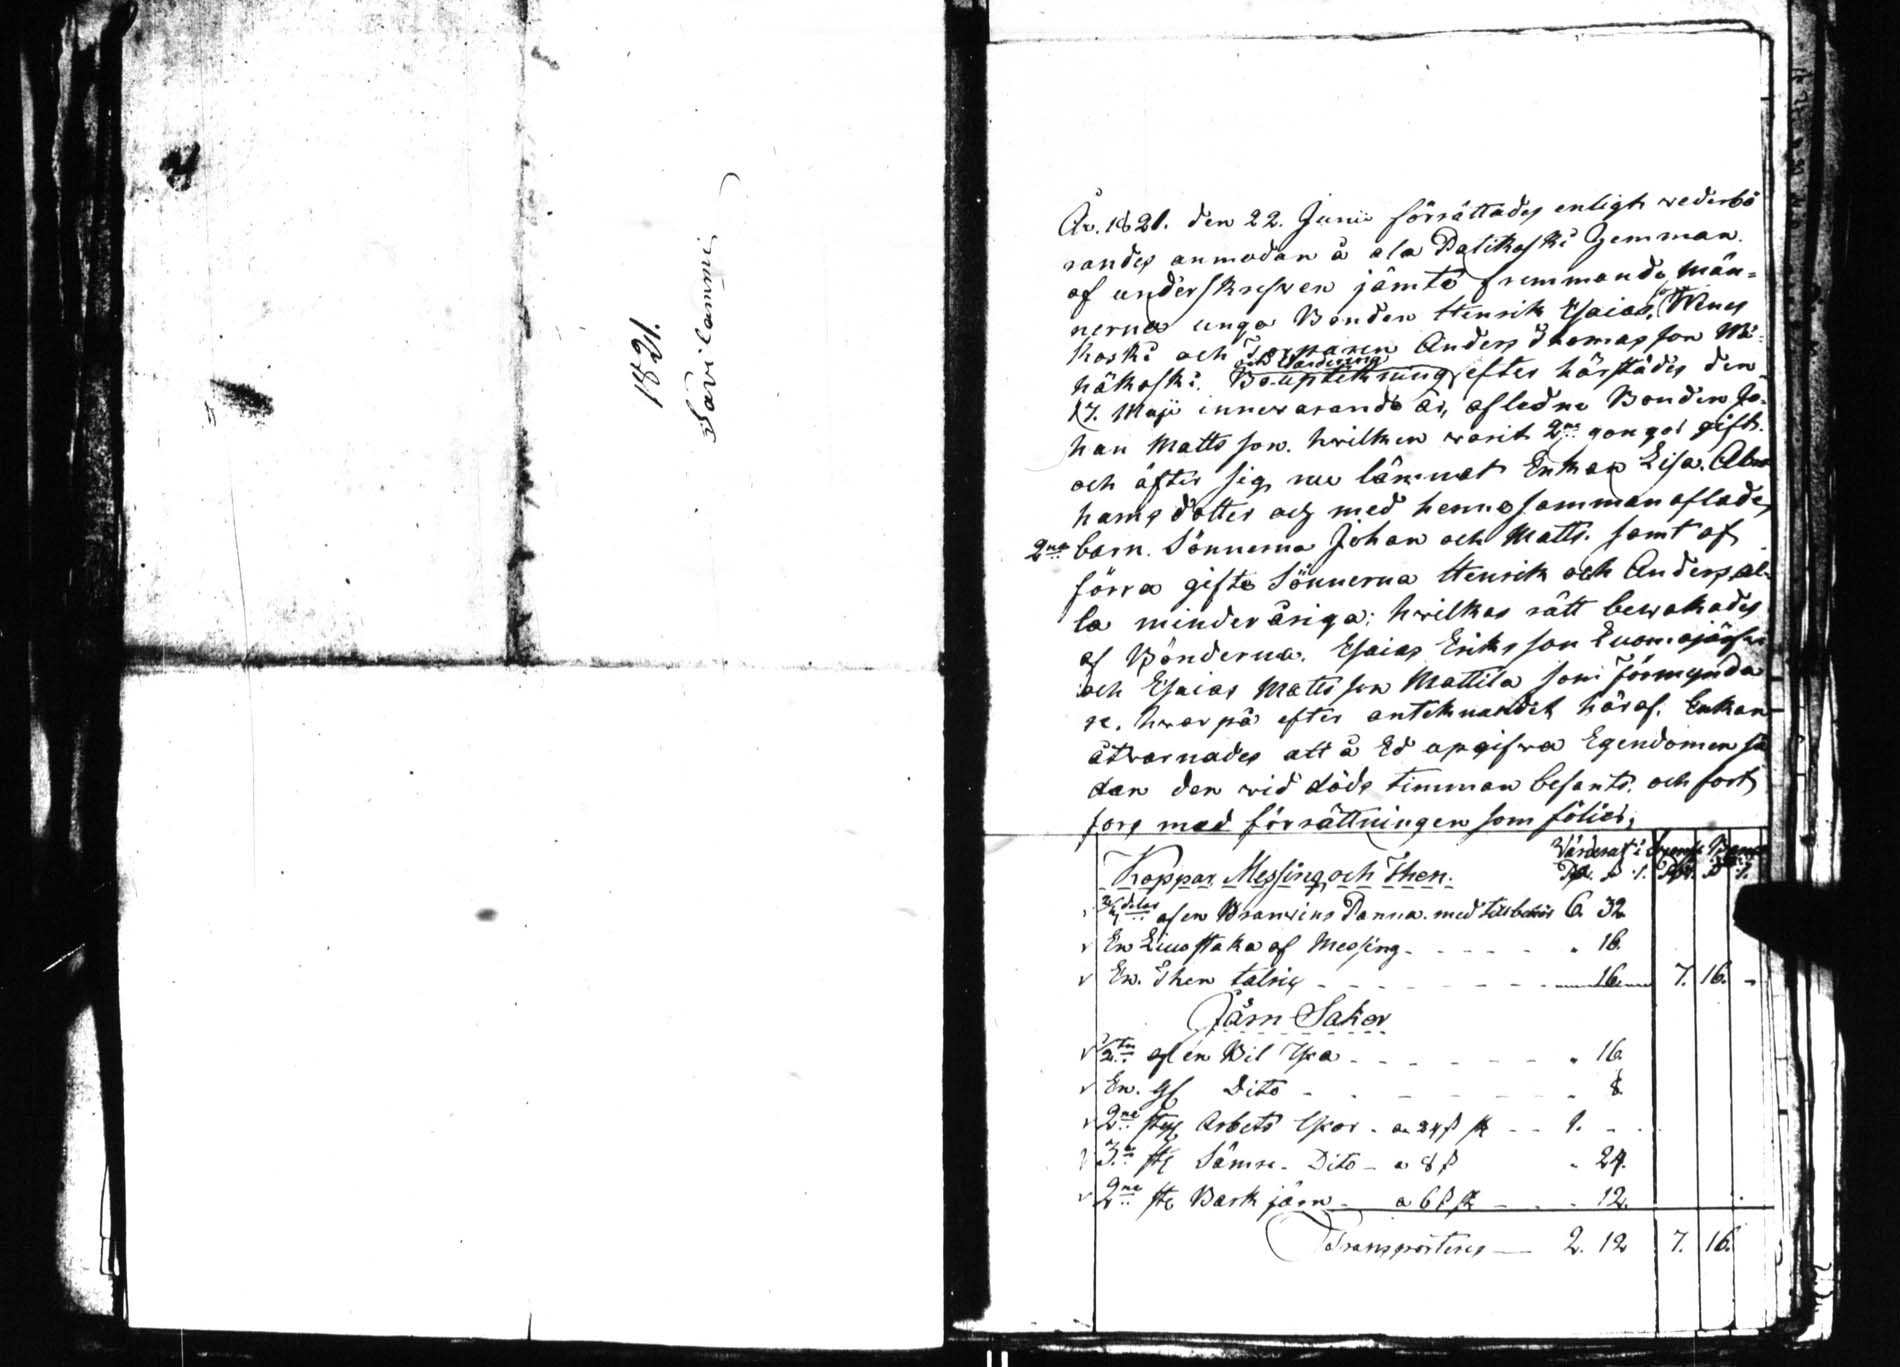 1821.
Savilammi
År. 1821. den 22. Junii förrättades enligt wederbö
randes anmodan å ala Patikoski Hemman
af underskrefwen jämte fremmande Män=
nerna unga Bonden Henrik Esaias,
koski och Torparen Anders Thomasson Mä=
näkoski. Bouptekning och Wärdering efter härstädes den
17. Maji innewarande år, afledne Bonden Jo=
han Mattsson. hwilken warit 2ne gongor gift.
och äfter sig nu lämnat Enkan Lisa Abra
hams dotter och med henne samman aflade
2ne barn. Sönnerna Johan och Matts. samt af
förra gifte Sönnerna Henrik och Anders al=
la minderåriga; hwilkas rätt bewakades
af Bönderna. Esaias Eriksson Luomajärfwi
och Esaias Matsson Mattila som Förmynda
re. hwarpå efter anteknandet häraf. Enkan
åtwarnades att å Ed upgifwa Egendomen så
dan den wid döds timman befants. och fort
fors med förrättningen som följer;
Koppar Messing och Then. Wärderat i Svensk Banco
3/4 delar af en Branwins Panna. med tillbehör 6. 32
En Liusstaka af Messing - - - " 16.
En. Then talrik - - - 16. 7. 16. -
Järn Saker
1/2 ten af en Bil Yxa - - - " 16.
En. gl Dito - - - 8
2ne styk Arbets Yxor - a 24 ß st - - 1. - -
3e st Sämre - Dito - a 8 ß " 24.
2ne st Bark järn - a 6 ß st - - - 12.
Transporteres — 2. 12 7. 16.